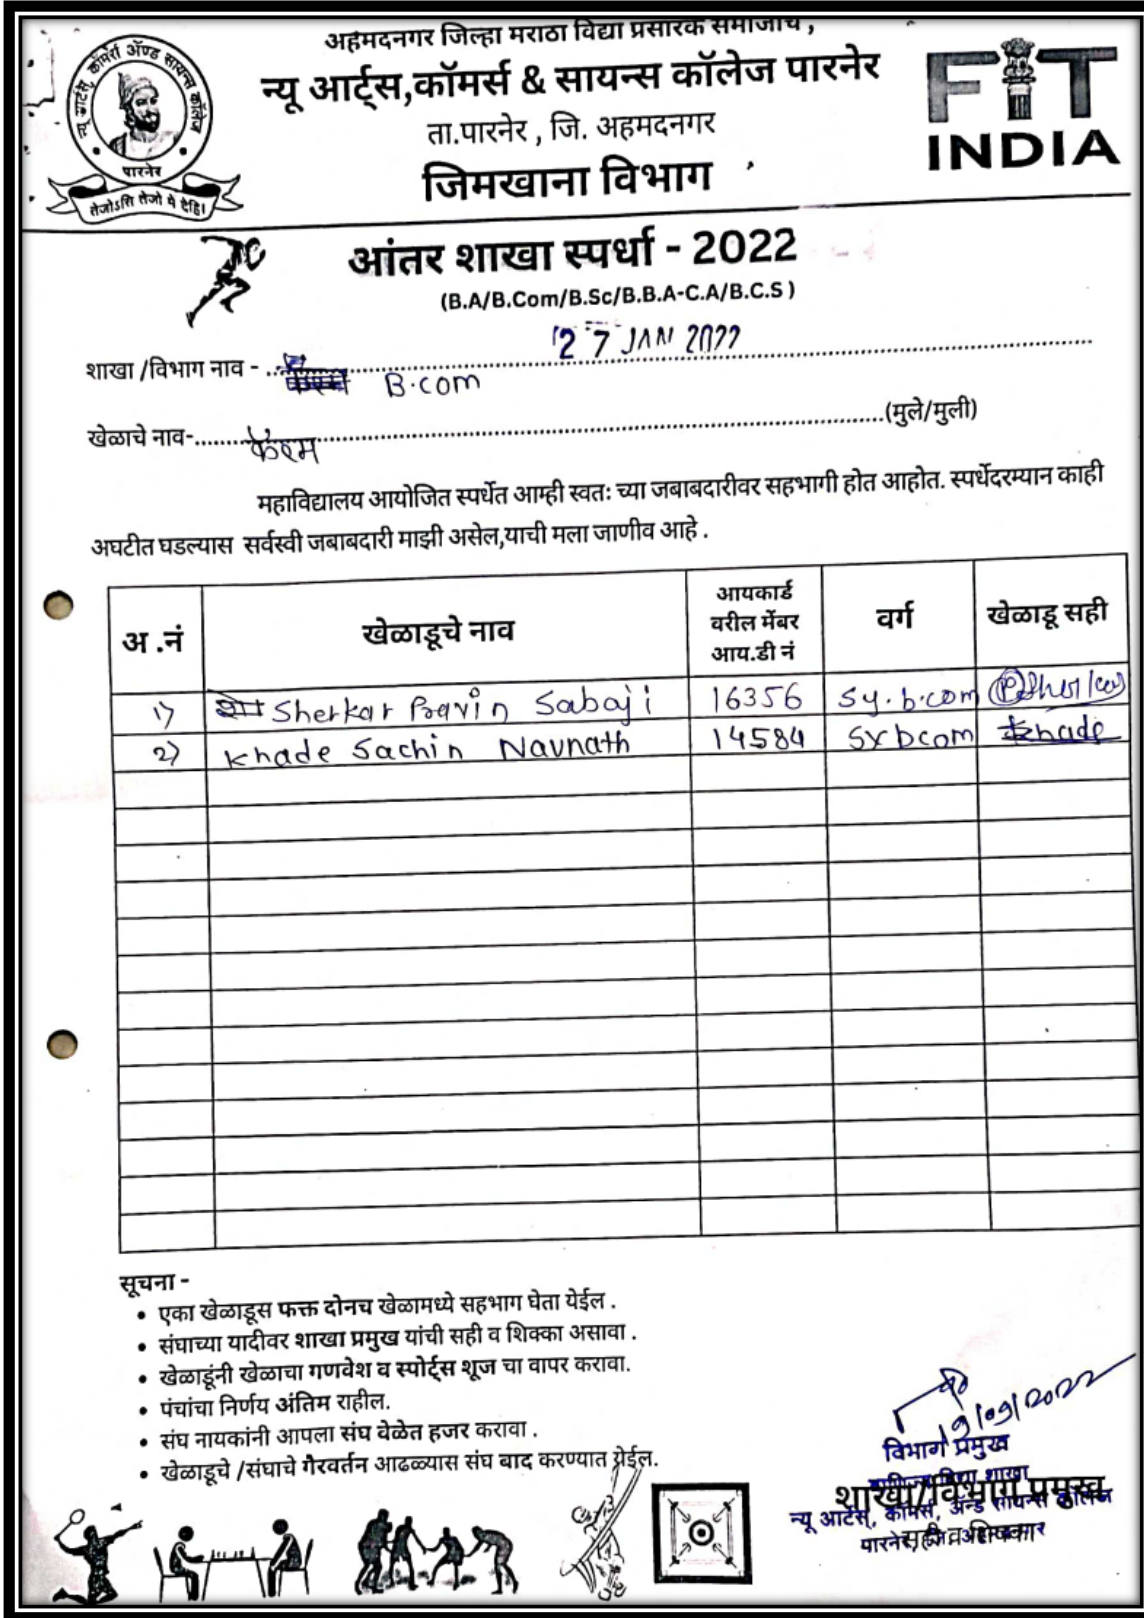 अहमदनगर जिल्हा मराठा विद्या प्रसारक समाजाचे ,
न्यू आर्ट्स,कॉमर्स & सायन्स कॉलेज पारनेर
ता.पारनेर , जि. अहमदनगर
जिमखाना विभाग
न्यू आर्ट्स, कॉमर्स ॲण्ड सायन्स कॉलेज
पारनेर
तेजोऽसि तेजो मे देहि।
FIT
INDIA
आंतर शाखा स्पर्धा - 2022
(B.A/B.Com/B.Sc/B.B.A-C.A/B.C.S )
27 JAN 2022
शाखा /विभाग नाव - B.com
खेळाचे नाव- कॅरम (मुले/मुली)
महाविद्यालय आयोजित स्पर्धेत आम्ही स्वतः च्या जबाबदारीवर सहभागी होत आहोत. स्पर्धेदरम्यान काही
अघटीत घडल्यास सर्वस्वी जबाबदारी माझी असेल,याची मला जाणीव आहे .
अ .नं खेळाडूचे नाव आयकार्ड वरील मेंबर आय.डी नं वर्ग खेळाडू सही
1) Sherkar Pravin Sabaji 16356 Sy.b.com PSherkar
2) Khade Sachin Navnath 14584 SY bcom Khade
सूचना -
• एका खेळाडूस फक्त दोनच खेळामध्ये सहभाग घेता येईल .
• संघाच्या यादीवर शाखा प्रमुख यांची सही व शिक्का असावा .
• खेळाडूंनी खेळाचा गणवेश व स्पोर्ट्स शूज चा वापर करावा.
• पंचांचा निर्णय अंतिम राहील.
• संघ नायकांनी आपला संघ वेळेत हजर करावा .
• खेळाडूचे /संघाचे गैरवर्तन आढळ्यास संघ बाद करण्यात येईल.
विभाग प्रमुख
वाणिज्य विद्या शाखा
शाखा/विभाग प्रमुख
न्यू आर्टस्, कॉमर्स, ॲन्ड सायन्स कॉलेज
सही व शिक्का